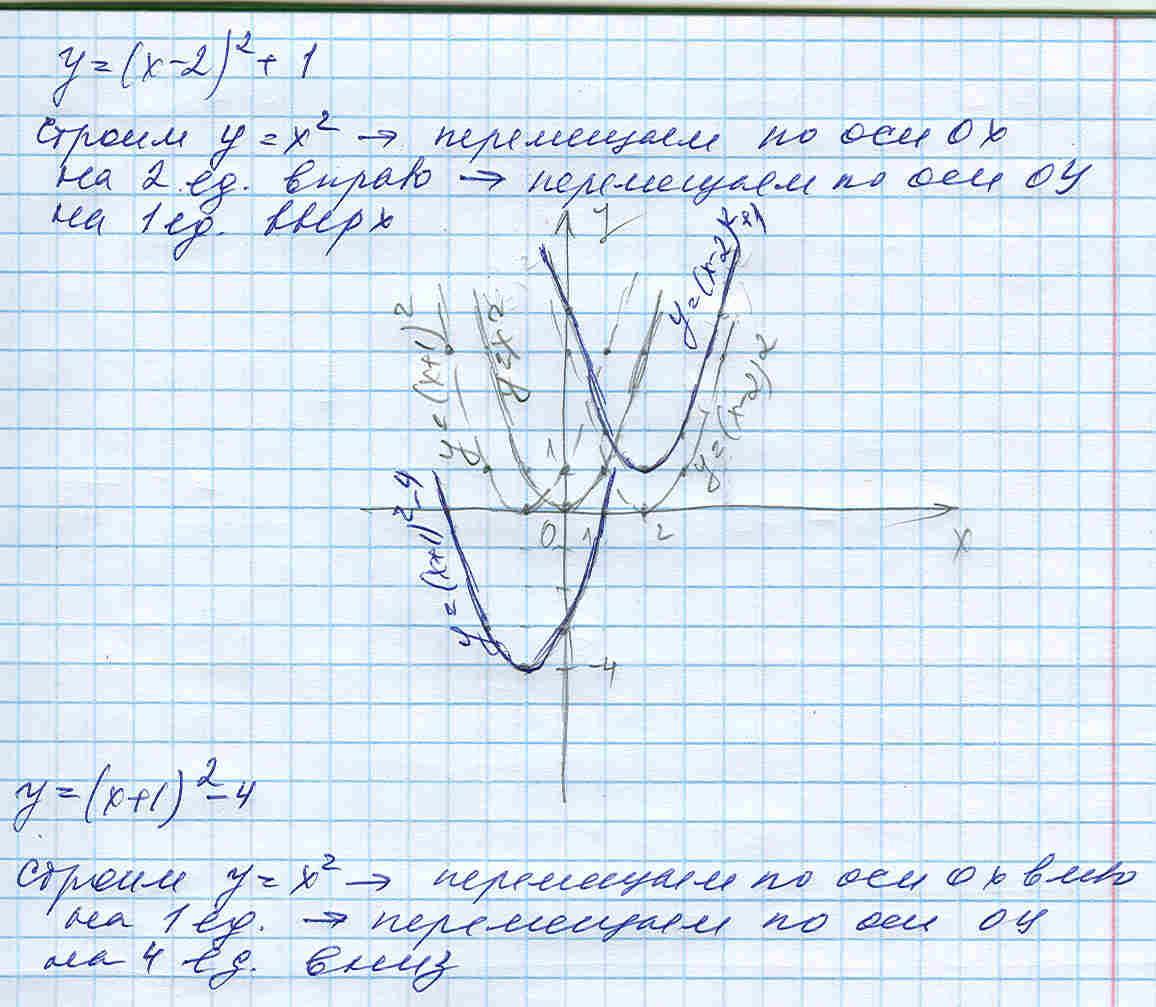 y = (x-2)² + 1
Строим y = x² → перемещаем по оси OX
на 2 ед. вправо → перемещаем по оси OY
на 1 ед. вверх
y
y = (x-2)²+1
y = (x+1)²
y = x²
y = (x-2)²
1
0 1 2
x
y = (x+1)²-4
-4
y = (x+1)²-4
Строим y = x² → перемещаем по оси OX влево
на 1 ед. → перемещаем по оси OY
на 4 ед. вниз